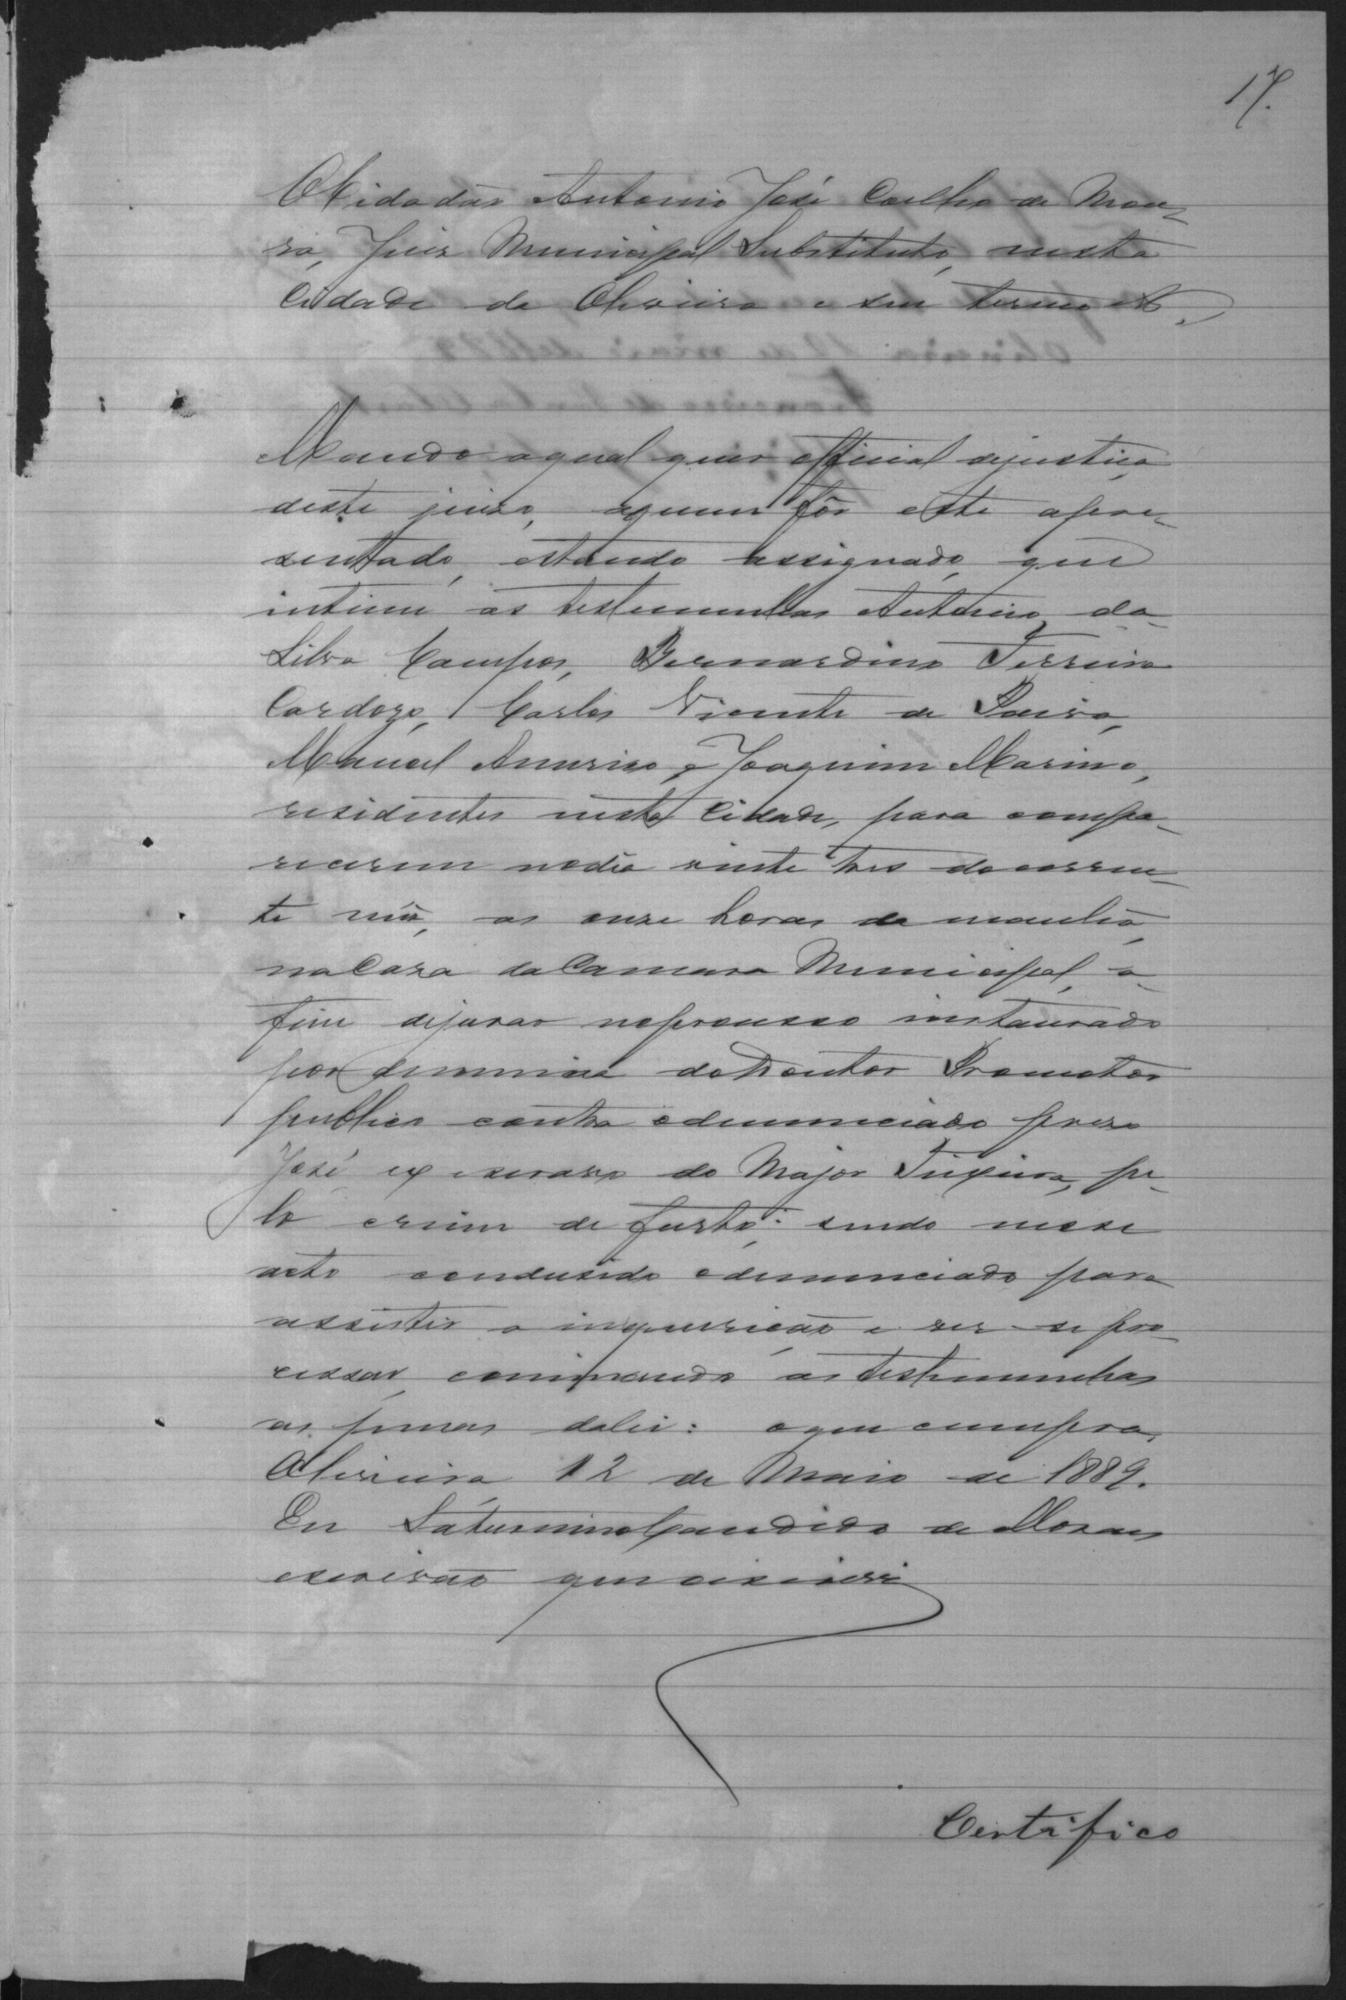 17.
O Cidadão Antonio José Coelho de Mou-
ra, Juiz Municipal Substituto, nesta
Cidade de Oliveira e seu termo etc.
Mando aqual quer official dejustiça
deste juizo, aquem fôr este apre-
sentado, estando assignado, que
intime as testemunhas Antonio da
Silva Campos, Bernardino Ferreira
Cardozo, Carlos Vicente de Paiva,
Manoel Americo, e Joaquim Marino,
residentes nesta Cidade, para compa-
recerem nodia vinte tres do corren-
te mês, as onze horas da manhã,
na Caza da Camara Municipal, a
fim dejurar noprocesso instaurado
por denuncia do Doutor Promotor
publico contra odenunciado prezo
José, ex escravo do Major Teixeira, pe-
lo crime de furto; sendo nesse
acto conduzido odenunciado para
assistir a inquirição e ver se pro-
cessar, cominando as testemunhas
as penas dalei: oque cumpra.
Oliveira, 12 de Maio de 1889.
Eu Saturnino Candido de Moraes
escrivão que oescrevi
Certifico